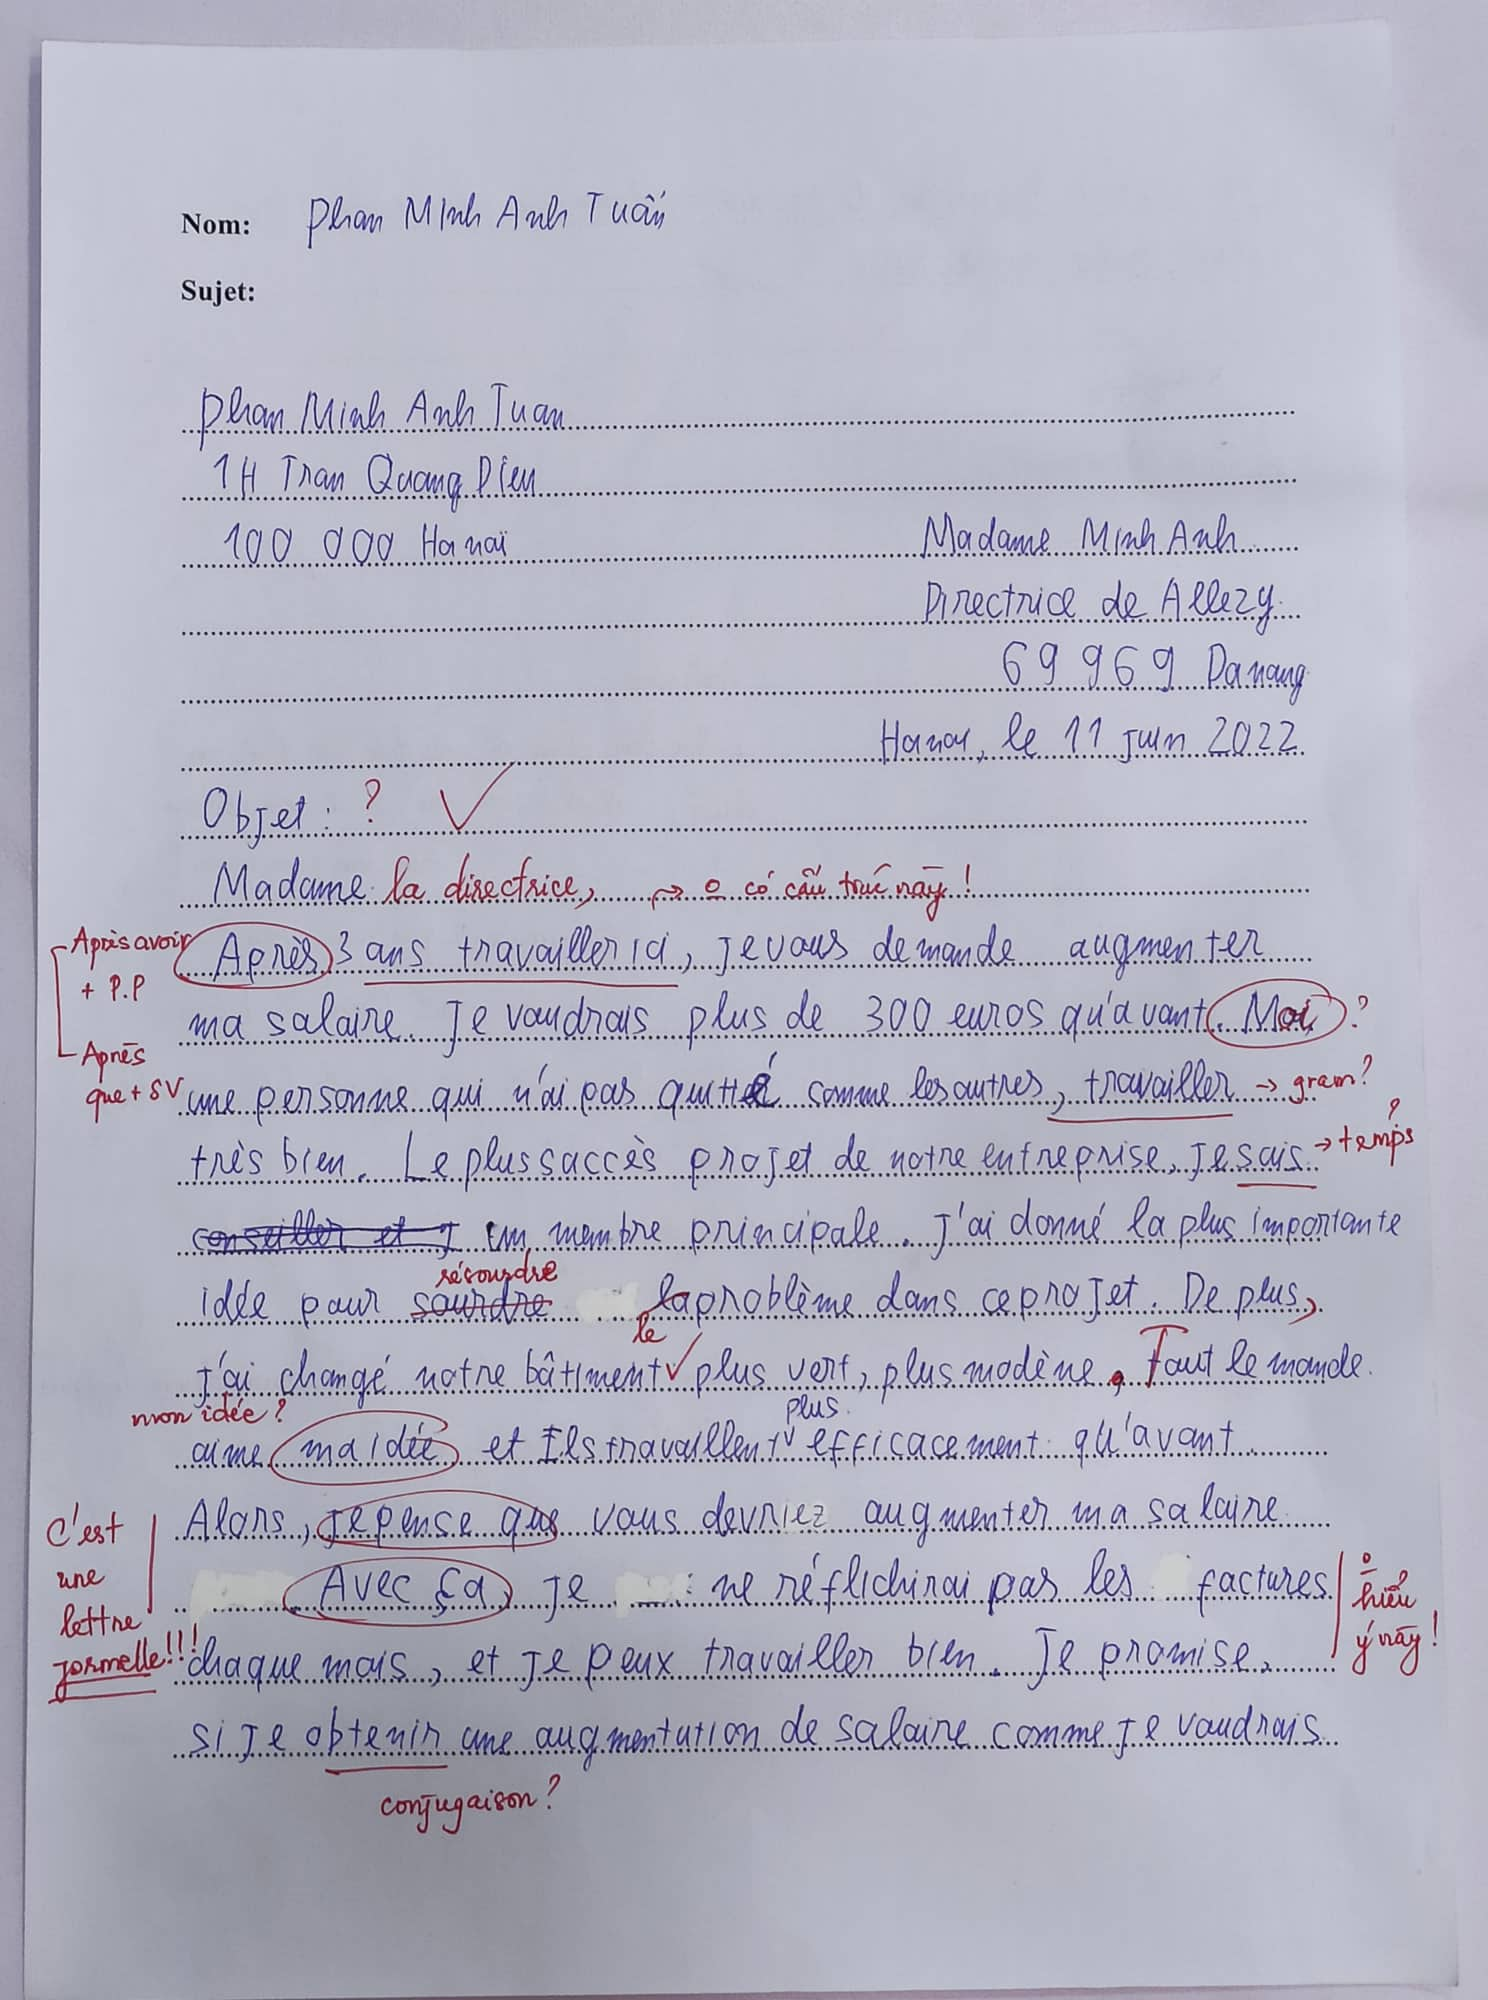 Nom: Phan Minh Anh Tuấn
Sujet:
Phan Minh Anh Tuan
1H Tran Quang Dieu
100 000 Hanoï
Madame Minh Anh
Directrice de Allezy
69 969 Danang
Hanoi, le 11 juin 2022
Objet : ?
Madame la directrice, → o có cấu trúc này !
Après avoir + P.P
Après que + SV
Après 3 ans travailler ici, je vous demande augmenter
ma salaire. Je voudrais plus de 300 euros qu'avant. Moi, ?
une personne qui n'ai pas quitté comme les autres, travailler → gram?
très bien. Le plus saccès projet de notre entreprise, je sais → temps ?
conseiller et j un membre principale. J'ai donné la plus importante
résoudre
idée pour sourdre la problème dans ce projet. De plus,
le
j'ai changé notre bâtiment plus vert, plus modène, Tout le monde
mon idée ? plus
aime ma idée et Ils travaillent efficacement qu'avant
Alors, je pense que vous devriez augmenter ma salaire
C'est une lettre formelle !!!
Avec ça, je ne réflichirai pas les factures
o hiểu ý này !
chaque mois, et je peux travailler bien. Je promise,
si je obtenir une augmentation de salaire comme je voudrais
conjugaison ?